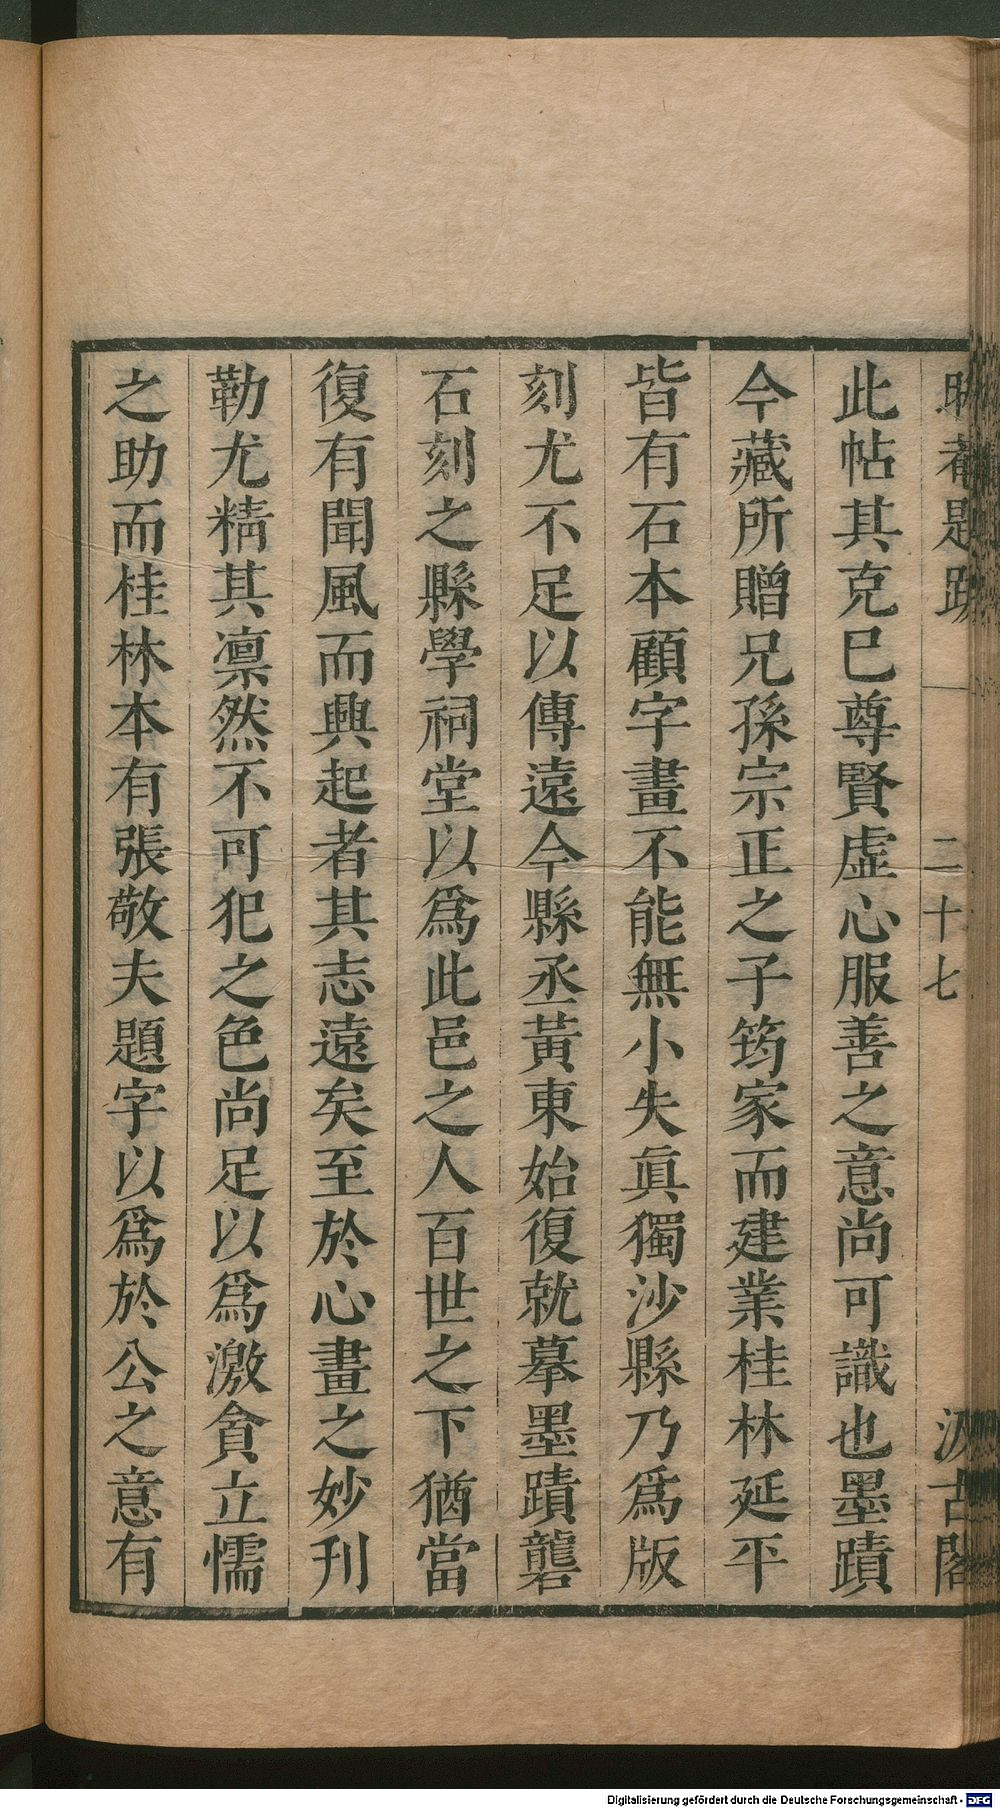 題跋
二十七
汲古閣
此帖其克巳尊賢虛心服善之意尚可識也墨蹟
今藏所贈兄孫宗正之子筠家而建業桂林延平
皆有石本顧字畫不能無小失眞獨沙縣乃爲版
刻尤不足以傳遠今縣丞黃東始復就摹墨蹟礱
石刻之縣學祠堂以爲此邑之人百世之下猶當
復有聞風而興起者其志遠矣至於心畫之妙刊
勒尤精其凛然不可犯之色尚足以爲激貪立懦
之助而桂林本有張敬夫題字以爲於公之意有
Digitalisierung gefördert durch die Deutsche Forschungsgemeinschaft - DFG